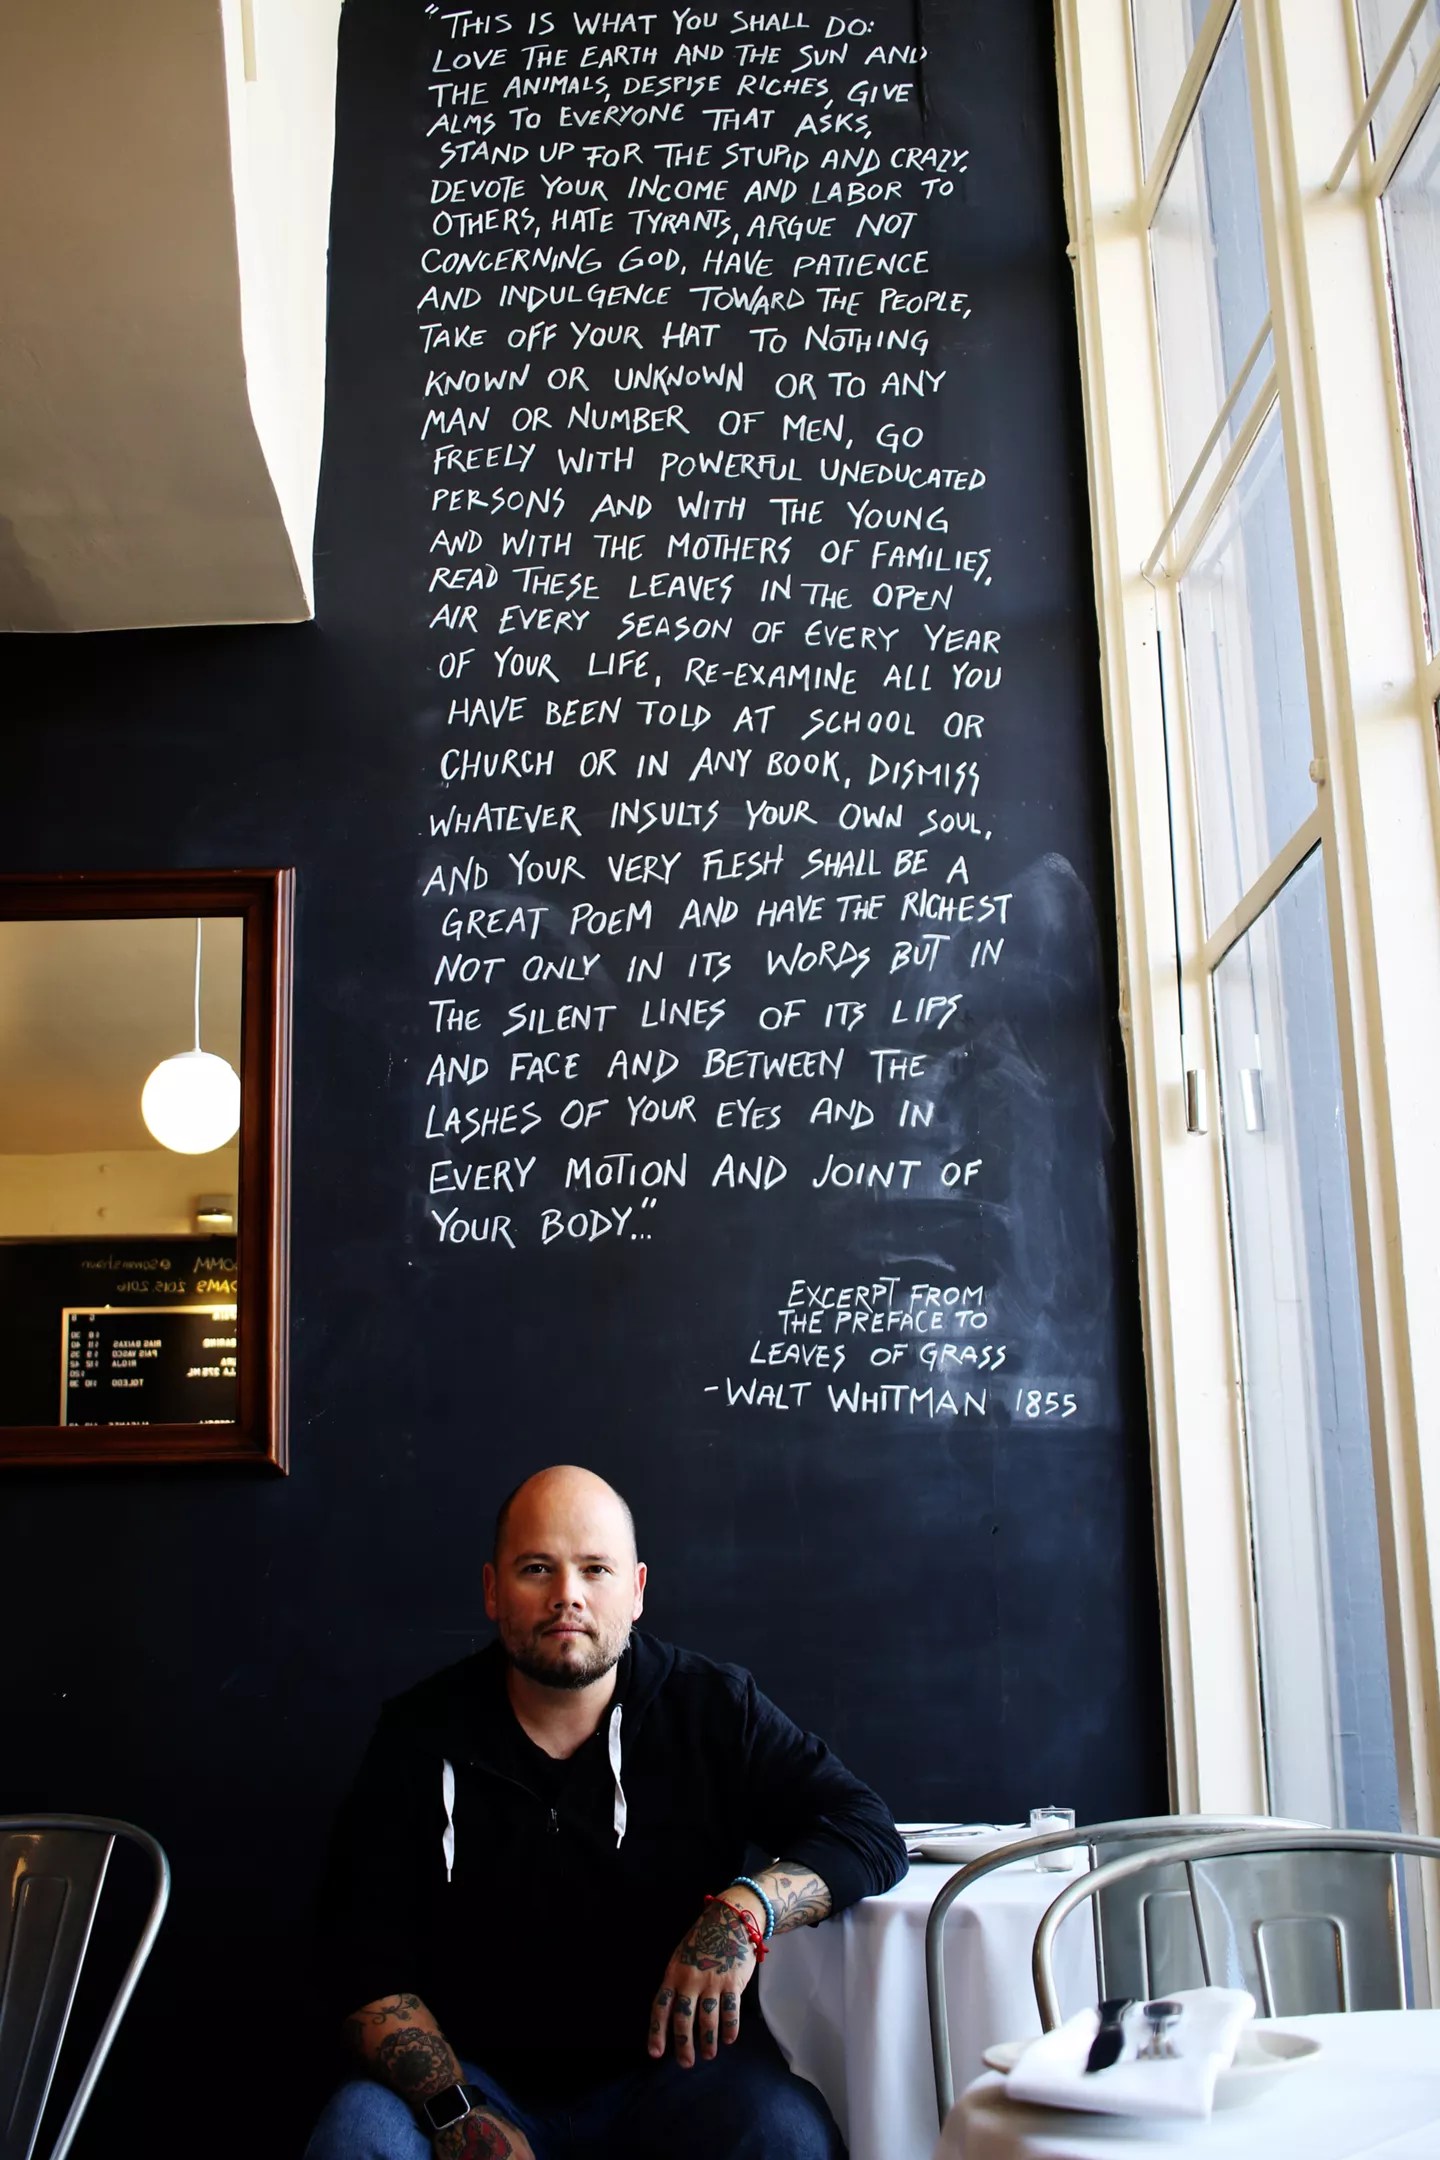 "THIS IS WHAT YOU SHALL DO:
LOVE THE EARTH AND THE SUN AND
THE ANIMALS, DESPISE RICHES, GIVE
ALMS TO EVERYONE THAT ASKS,
STAND UP FOR THE STUPID AND CRAZY,
DEVOTE YOUR INCOME AND LABOR TO
OTHERS, HATE TYRANTS, ARGUE NOT
CONCERNING GOD, HAVE PATIENCE
AND INDULGENCE TOWARD THE PEOPLE,
TAKE OFF YOUR HAT TO NOTHING
KNOWN OR UNKNOWN OR TO ANY
MAN OR NUMBER OF MEN, GO
FREELY WITH POWERFUL UNEDUCATED
PERSONS AND WITH THE YOUNG
AND WITH THE MOTHERS OF FAMILIES,
READ THESE LEAVES IN THE OPEN
AIR EVERY SEASON OF EVERY YEAR
OF YOUR LIFE, RE-EXAMINE ALL YOU
HAVE BEEN TOLD AT SCHOOL OR
CHURCH OR IN ANY BOOK, DISMISS
WHATEVER INSULTS YOUR OWN SOUL,
AND YOUR VERY FLESH SHALL BE A
GREAT POEM AND HAVE THE RICHEST
NOT ONLY IN ITS WORDS BUT IN
THE SILENT LINES OF ITS LIPS
AND FACE AND BETWEEN THE
LASHES OF YOUR EYES AND IN
EVERY MOTION AND JOINT OF
YOUR BODY..."
EXCERPT FROM
THE PREFACE TO
LEAVES OF GRASS
-WALT WHITMAN 1855
RIAS BAIXAS
PAIS VASCO
RIOJA
TOLEDO